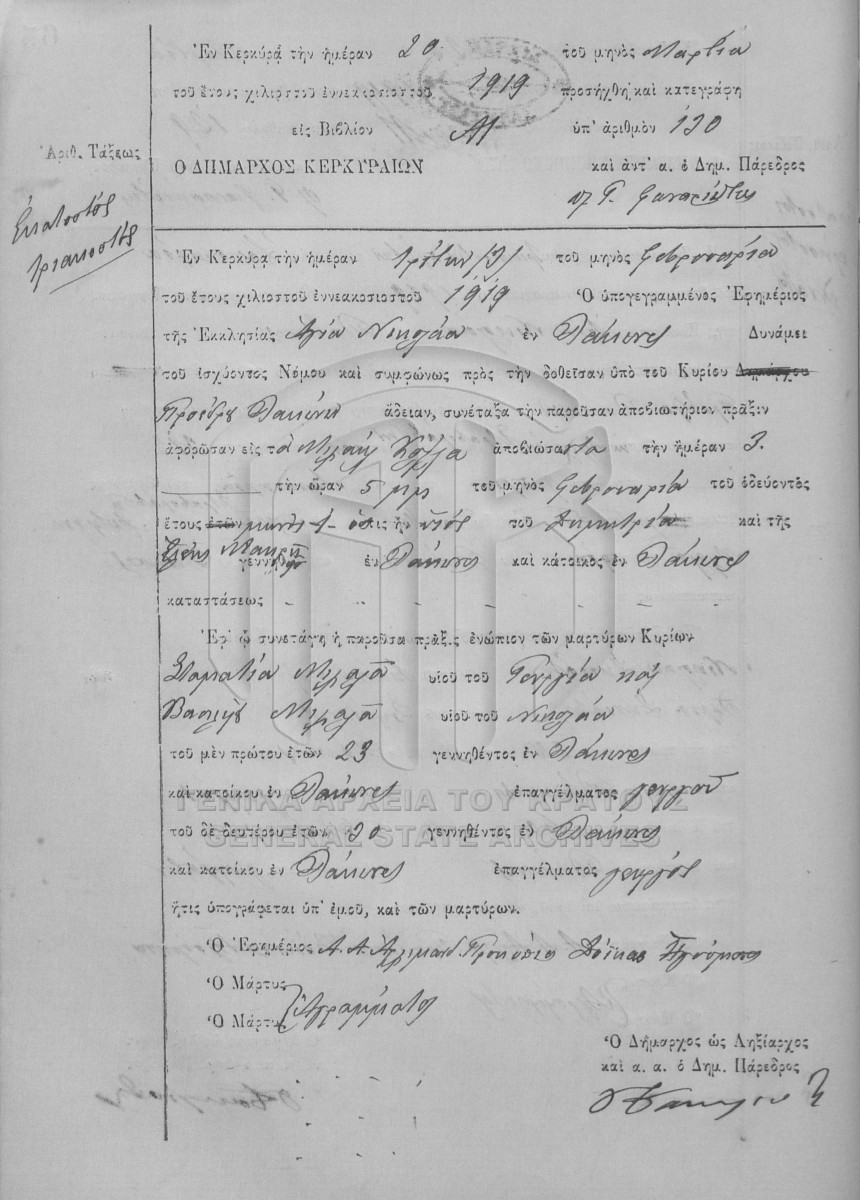 Ἐν Κερκύρᾳ τὴν ἡμέραν 20 τοῦ μηνὸς Μαρτίου
τοῦ ἔτους χιλιοστοῦ ἐννεακοσιοστοῦ 1919 προσήχθη καὶ κατεγράφη
εἰς Βιβλίον Α1 ὑπ' ἀριθμὸν 130
Ἀριθ. Τάξεως
Ο ΔΗΜΑΡΧΟΣ ΚΕΡΚΥΡΑΙΩΝ καὶ ἀντ' α. ὁ Δημ. Πάρεδρος
Ἑκατοστός
τριακοστός
Ἐν Κερκύρᾳ τὴν ἡμέραν τρίτην (3) τοῦ μηνὸς Φεβρουαρίου
τοῦ ἔτους χιλιοστοῦ ἐννεακοσιοστοῦ 1919 Ὁ ὑπογεγραμμένος Ἐφημέριος
τῆς Ἐκκλησίας Ἁγίου Νικολάου ἐν Λάκωνες Δυνάμει
τοῦ ἰσχύοντος Νόμου καὶ συμφώνως πρὸς τὴν δοθεῖσαν ὑπὸ τοῦ Κυρίου Δημάρχου
Προέδρου Λακώνων ἄδειαν, συνέταξα τὴν παροῦσαν ἀποβιωτήριον πρᾶξιν
ἀφορῶσαν εἰς τὸν Μιχαὴλ ἀποβιώσαντα τὴν ἡμέραν 3
τὴν ὥραν 5 μμ τοῦ μηνὸς Φεβρουαρίου τοῦ ὁδεύοντος
ἔτους ἐτῶν μηνὸς 1 ὅστις ἦν υἱὸς τοῦ Δημητρίου καὶ τῆς
γεννηθεὶς ἐν Λάκωνες καὶ κάτοικος ἐν Λάκωνες
καταστάσεως
Ἐφ' ᾧ συνετάγη ἡ παροῦσα πρᾶξις ἐνώπιον τῶν μαρτύρων Κυρίων
Σταματίου Μιχαλᾶ υἱοῦ τοῦ Γεωργίου καὶ
Βασιλείου Μιχαλᾶ υἱοῦ τοῦ Νικολάου
τοῦ μὲν πρώτου ἐτῶν 23 γεννηθέντος ἐν Λάκωνες
καὶ κατοίκου ἐν Λάκωνες ἐπαγγέλματος γεωργοῦ
ΓΕΝΙΚΑ ΑΡΧΕΙΑ ΤΟΥ ΚΡΑΤΟΥΣ
τοῦ δὲ δευτέρου ἐτῶν 30 γεννηθέντος ἐν Λάκωνες
GENERAL STATE ARCHIVES
καὶ κατοίκου ἐν Λάκωνες ἐπαγγέλματος γεωργός
ἥτις ὑπογράφεται ὑπ' ἐμοῦ, καὶ τῶν μαρτύρων.
Ὁ Ἐφημέριος Προκόπιος Ἡγούμενος
Ὁ Μάρτυς
Ὁ Μάρτυς Ἀγράμματοι
Ὁ Δήμαρχος ὡς Ληξίαρχος
καὶ α. α. ὁ Δημ. Πάρεδρος